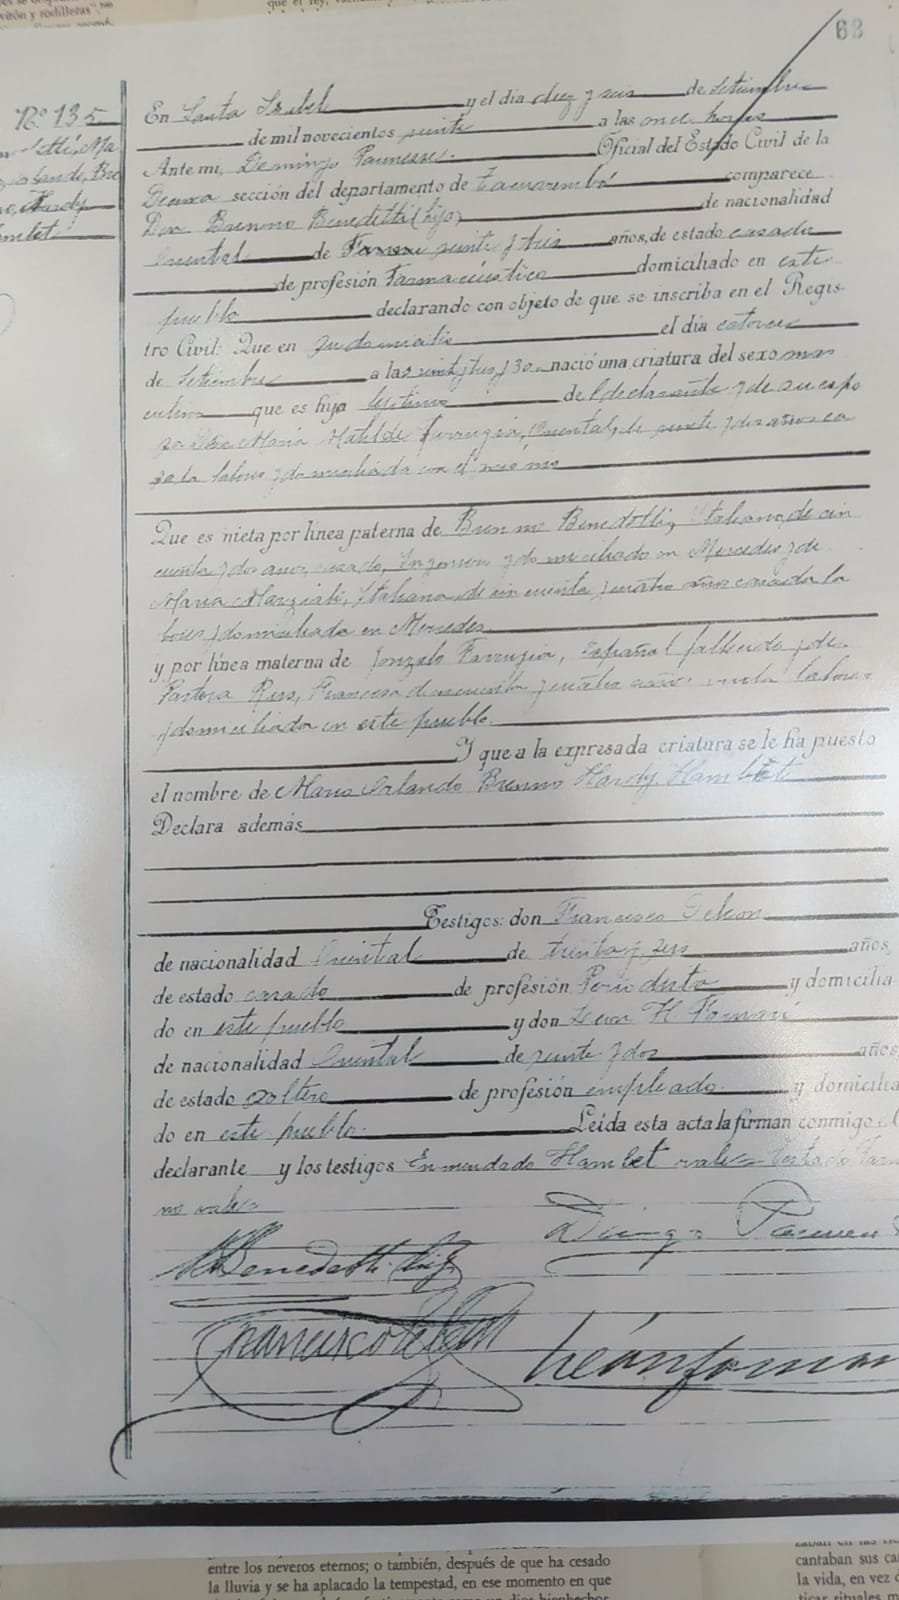 vitón y rodilleras",
68
Nº 135
Hardy
En Santa Isabel y el día diez y seis de Setiembre
de mil novecientos veinte a las once horas
Ante mi, Domingo Oficial del Estado Civil de la
sección del departamento de Tacuarembó comparece
Don Brenno Benedetti (hijo) de nacionalidad
Oriental de veinte y tres años, de estado casado
de profesión Farmacéutico domiciliado en este
pueblo declarando con objeto de que se inscriba en el Regis-
tro Civil: Que en su domicilio el día catorce
de Setiembre a las nació una criatura del sexo mas
culino que es hijo legítimo del declarante y de su espo
sa Doña María Matilde Farrugia, Oriental, de veinte y dos años ca
sada labores y domiciliada con el mismo
Que es nieta por línea paterna de Brenno Benedetti, Italiano, de cin
cuenta y dos años, casado, Ingeniero y domiciliado en Mercedes y de
María Marziali, Italiana de cincuenta y cuatro años casada la
bores y domiciliada en Mercedes
y por línea materna de Gonzalo Farrugia, Español fallecido y de
Pastora Francesa de cincuenta y cuatro años viuda labores
y domiciliada en este pueblo.
Y que a la expresada criatura se le ha puesto
el nombre de Mario Orlando Brenno Hardy Hamblet
Declara además
Testigos: don Francisco
de nacionalidad Oriental de treinta y seis años,
de estado casado de profesión Periodista y domicilia-
do en este pueblo y don León H
de nacionalidad Oriental de veinte y dos años,
de estado soltero de profesión empleado y domicilia
do en este pueblo. Leída esta acta la firman conmigo
declarante y los testigos Enmendado Hamblet vale Testado
no vale
Benedetti hijo
Francisco
León
entre los neveros eternos; o también, después de que ha cesado
la lluvia y se ha aplacado la tempestad, en ese momento en que
cantaban sus
la vida, en vez